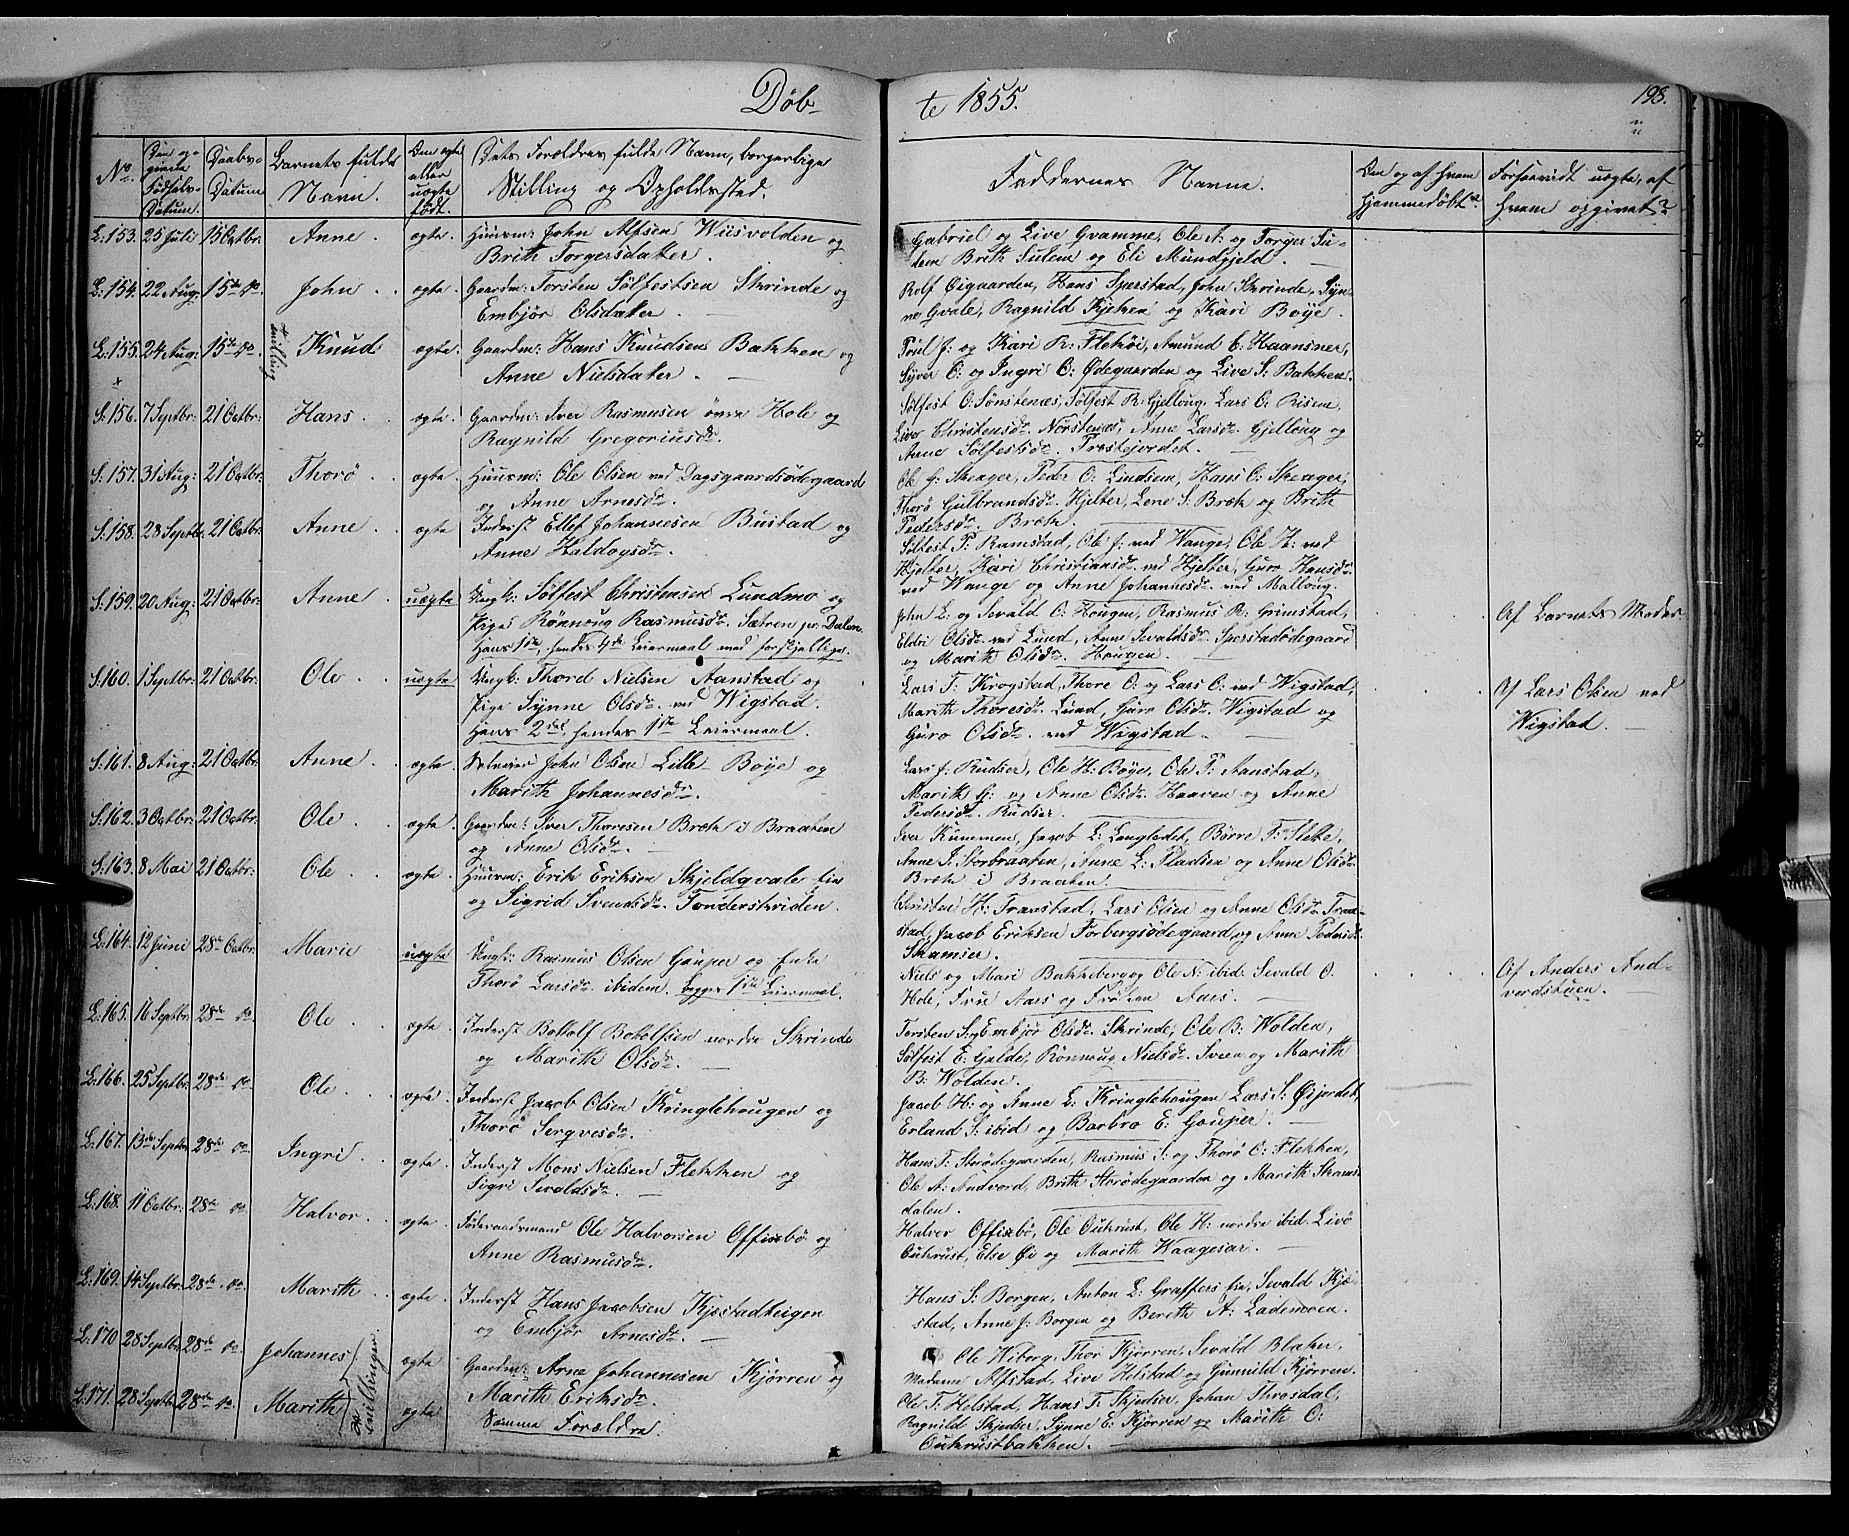 Døb-
te 1855.
198.
No.
Den og-
givne
Fødsels-
Datum.
Daabs-
Datum
Barnets fulde
Navn.
Om ægte
eller
uægte
født.
Dets Forældres fulde Navn, borgerlige
Stilling og Opholdssted.
Faddernes Navne.
Om og af hvem
hjemmedøbt?
Forsaavidt uægte, af
hvem opgivet?
L:153. 25 Juli 15 Octbr: Anne. ægte. Huusm: John Alfsen Wiisvolden og
Brith Torgersdatter.
Gabriel og Live Gvamme, Ole A: og Torger Su-
lem Brith Sulem og Eli Mundgjeld.
L:154. 22 Aug: 15de do. John. ægte. Gaardm: Torsten Sølfestsen Skrinde og
Embjør Olsdatter.
Rolf Øigaarden, Hans Sperstad, John Skrinde, Syn-
nø Gvale, Ragnild Kjetken og Kari Bøye.
L:155. 24 Aug: 15de do. Tvilling Knud ægte. Gaardm: Hans Knudsen Bakken og
Anne Nielsdatter.
Poul J: og Kari R: Flekøi, Amund E: Haansner,
Syver O: og Ingri O: Ødegaarden og Live S: Bakken.
S:156. 7 Septbr: 21 Octbr: Hans. ægte. Gaardm: Iver Rasmusen øvre Hole og
Ragnild Gregoriusdr.
Sølfest O: Sønstenæs, Sølfest R: Gjelloug, Lars O: Risem,
Live Christensdr. Nørstenæs, Anne Larsdr. Gjelloug og
Anne Sølfestsdr. Trostejordet.
S:157. 31 Aug: 21 Octbr: Thorø. ægte. Huusm: Ole Olsen ved Dagsgaardsødegaard
og Anne Arnesdr.
Ole G: Skeager, Peder O: Lindsem, Hans O: Skeager,
Thorø Gulbrandsdr. Hjelter, Lene S: Bræk og Brith
Pedersdr. Bræk.
S:158. 28 Septbr. 21 Octbr: Anne. ægte Inderst Ellef Johannesen Bustad og
Anne Haldogsdr.
Sølfest P: Ramstad, Ole J: ved Wange, Ole H: ved
Hjelter, Kari Christiansdr. ved Hjelter, Guro Hansdr.
ved Wange og Anne Johannesdr. ved Malloug.
S:159. 20 Aug: 21 Octbr: Anne. uægte Ungk: Sølfest Christensen Lundmo og
Pigen Rønnoug Rasmusdr. Sætren pr. Dalen.
Hans 1ste, hendes 4de Leiermaal med forskjellige.
John L: og Sevald O: Hougen, Rasmus R: Grimstad,
Eldri Olsdr. ved Lund, Anne Sevaldsdr. Sperstadødegaard
og Marith Olsdr. Hougen.
Af Barnets Moder.
S:160. 1 Septbr: 21 Octbr: Ole. uægte Ungk: Thord Nielsen Aanstad og
Pige Synne Olsdr. ved Wigstad.
Hans 2det, hendes 1ste Leiermaal.
Lars T: Krogstad, Thore O: og Lars O: ved Wigstad,
Marith Thoresdr. Lund, Guro Olsdr. Wigstad og
Guro Olsdr. ved Wigstad.
Af Lars Olsen ved
Wigstad.
S:161. 8 Aug: 21 Octbr: Anne. ægte. Selveier John Olsen Lille-Bøye og
Marith Johannesdr.
Lars J: Rudser, Ole H: Bøye, Ole P: Aanstad,
Marith G: og Anne Olsdr. Haaven og Anne
Pedersdr. Rudser.
S:162. 3 Octbr: 21 Octbr: Ole. ægte. Gaardm: Iver Thoresen Bræk i Braaten
og Anne Olsdr.
Iver Kummen, Jacob L: Langledet, Birre T: Sleke,
Anne I: Storbraaten, Anne L: Fladsen og Anne Olsdr.
Bræk i Braaten.
S:163. 8 Mai 21 Octbr: Ole. ægte. Huusm: Erik Eriksen Skjeldqvale Eie
og Sigrid Svendsdr. Tønderskriden.
Christen H: Traastad, Lars Olsen og Anne Olsdr. Traa-
stad, Jacob Eriksen Forbergsødegaard og Anne Pedersdr.
Skamser.
L:164. 12 Juni 28de Octbr. Marie uægte Ungk: Rasmus Olsen Gauper og Enke
Thorø Larsdr. ibidem. begges 1ste Leiermaal.
Niels og Mari Bakkeberg og Ole N: ibid: Sevald O.
Hole, Fru Aars og Frøken Aars.
Af Anders And-
vordstuen.
L:165. 16 Septbr: 28de do. Ole. ægte. Inderst Botolf Botolfsen nordre Skrinde
og Marith Olsdr.
Torsten S. og Embjør Olsdr. Skrinde, Ole B: Wolden,
Sølfest E: Galde, Rønnoug Nielsdr. Sveen og Marith
B: Wolden.
L:166. 25 Septbr. 28de do. Ole. ægte. Inderst Jacob Olsen Kringlehougen og
Thorø Sergvesdr.
Jacob H: og Anne L: Kringlehougen Lars S: Øijordet,
Erland S: ibid og Barbro E: Gauper.
L:167. 13de Septbr. 28de do. Ingri. ægte. Inderst Mons Nielsen Flekken og
Sigri Sevaldsdr.
Hans T: Storødegaarden, Rasmus S: og Thorø O: Flekken,
Ole A: Andvord, Brith Storødegaarden og Marith Skams-
dalen.
L:168. 11 Octbr: 28de do. Halvor. ægte. Føderaadsmand Ole Halvorsen Offigsbø og
Anne Rasmusdr.
Halvor Offigsbø, Ole Oukrust, Ole H: nordre ibid. Livø
Oukrust, Else Øi og Marith Waagesar.
L:169. 14 Septbr. 28de do. Marith. ægte. Inderst Hans Jacobsen Kjæstadteigen
og Embjør Arnesdr.
Hans S: Borgen, Anton L: Graffers Eie, Sevald Kjæ-
stad, Anne J: Borgen og Berith A: Lademoen.
L:170 28 Septbr. 28de do. Johannes ægte Gaardm: Arne Johannesen Kjørren og
Marith Eriksdr.
Ole Wiborg, Thor Kjørren, Sevald Blaker,
Madame Alfstad, Live Helstad og Gunnild Kjørren.
L:171. 28 Septbr. 28de do. Marith ere Tvillinger. ægte Samme Forældre.
Ole T: Helstad, Hans T: Skjedser, Johan Throsdal,
Ragnild Skjedser, Synne E: Kjørren og Marith O:
Oukrustbakken.